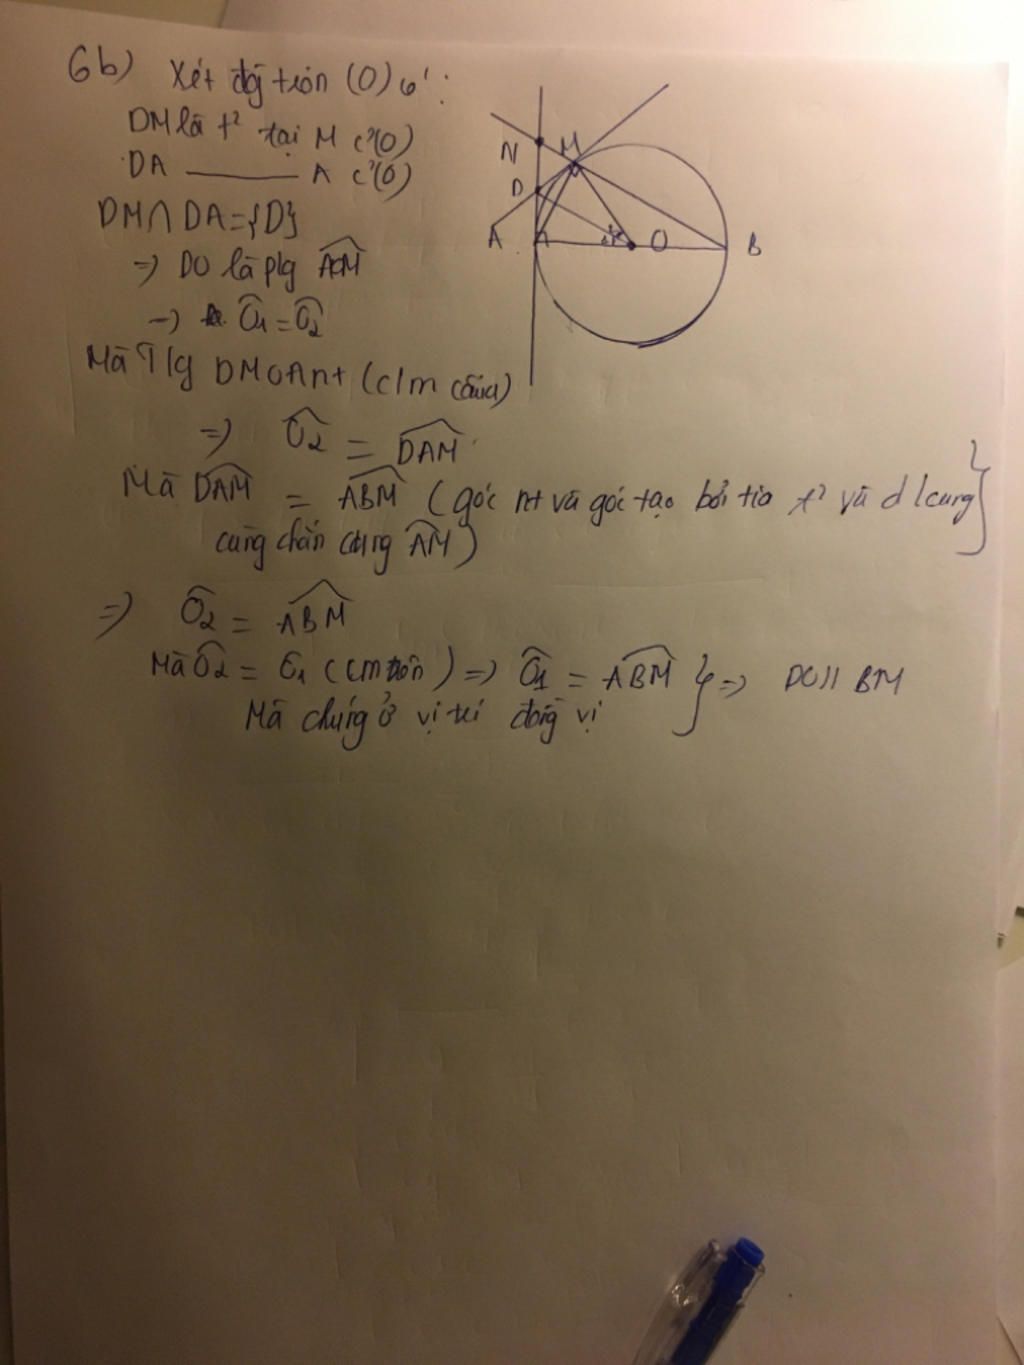 6b) Xét đg tròn (O) có:
DM là t² tại M c²(O)
DA ——— A c²(O)
DM∩DA={D}
=> DO là p/g AOM
N
M
D
A A O B
-> Ô1 = Ô2
Mà T/g DMOA nt (c/m câu a)
=> Ô2 = DAM
Mà DAM = ABM (góc nt và góc tạo bởi tia t² và d/cung
cùng chắn cung AM)
=> Ô2 = ABM
Mà Ô2 = Ô1 (cm trên) => Ô1 = ABM } => DO // BM
Mà chúng ở vị trí đồng vị